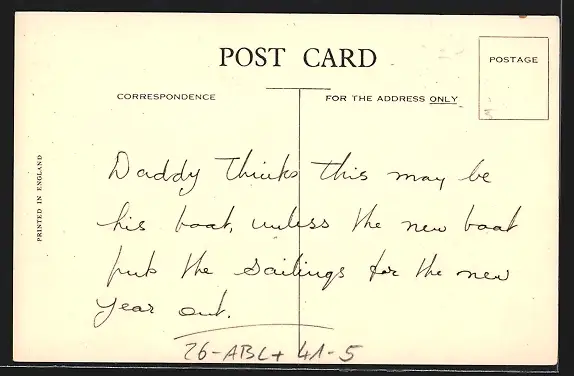 POST CARD
POSTAGE
CORRESPONDENCE
FOR THE ADDRESS ONLY
PRINTED IN ENGLAND
Daddy thinks this may be
his boat, unless the new boat
puts the sailings for the new
year out.
26-ABC+ 41-5